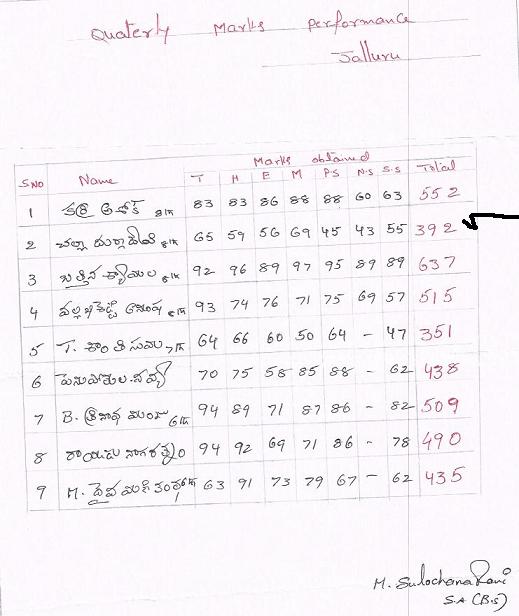 Quaterly Marks performance
Jalluru
Marks obtained
S.NO Name T H E M P.S N.S S.S Total
1 కర్రి అశోక్ 8th 83 83 86 88 88 60 63 552
2 చల్లా దుర్గాదేవి 8th 65 59 56 69 45 43 55 392
3 బత్తిన శ్యామల 8th 92 96 89 97 95 89 89 637
4 8th 93 74 76 71 75 69 57 515
5 T. శాంతి సుమ 7th 64 66 60 50 64 - 47 351
6 పెనుపోతుల నవ్య 70 75 58 85 88 - 62 438
7 B. 6th 94 89 71 87 86 - 82 509
8 రాయుడు నాగరత్నం 94 92 69 71 86 - 78 490
9 M. 63 91 73 79 67 - 62 435
M. Sulochana Rani
S.A (B.S)